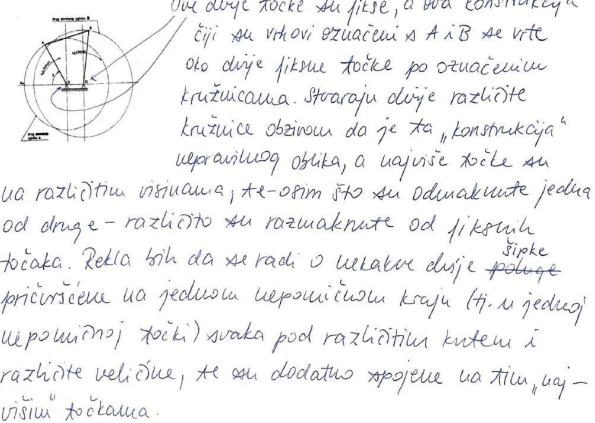 Ove dvije točke su fiksne, a ova konstrukcija
čiji su vrhovi označeni s A i B se vrte
oko dvije fiksne točke po označenim
kružnicama. Stvaraju dvije različite
kružnice obzirom da je ta „konstrukcija"
nepravilnog oblika, a najviše točke su
na različitim visinama, te-osim što su odmaknute jedna
od druge - različito su razmaknute od fiksnih
točaka. Rekla bih da se radi o nekakve dvije šipke
pričvršćene na jednom nepomičnom kraju (tj. u jednoj
nepomičnoj točki) svaka pod različitim kutem i
različite veličine, te su dodatno spojene na tim „naj-
višim" točkama.